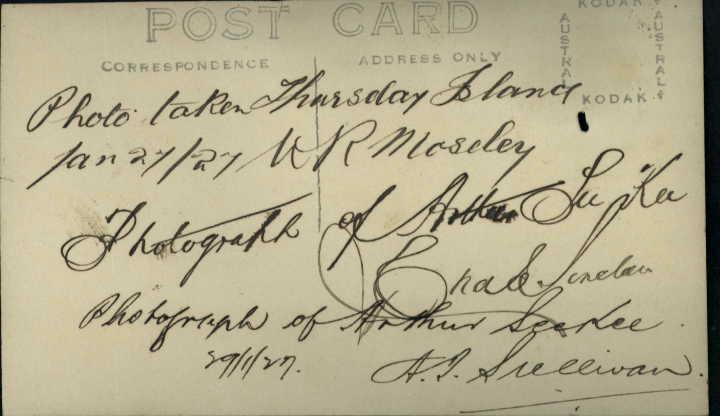 POST CARD
CORRESPONDENCE ADDRESS ONLY
KODAK
AUSTRAL
AUSTRAL
KODAK
Photo taken Thursday Island
Jan 27/27 R Moseley
Photograph of Arthur Su Kee
Photograph of Arthur See Kee.
29/1/27. A. J. Sullivan.